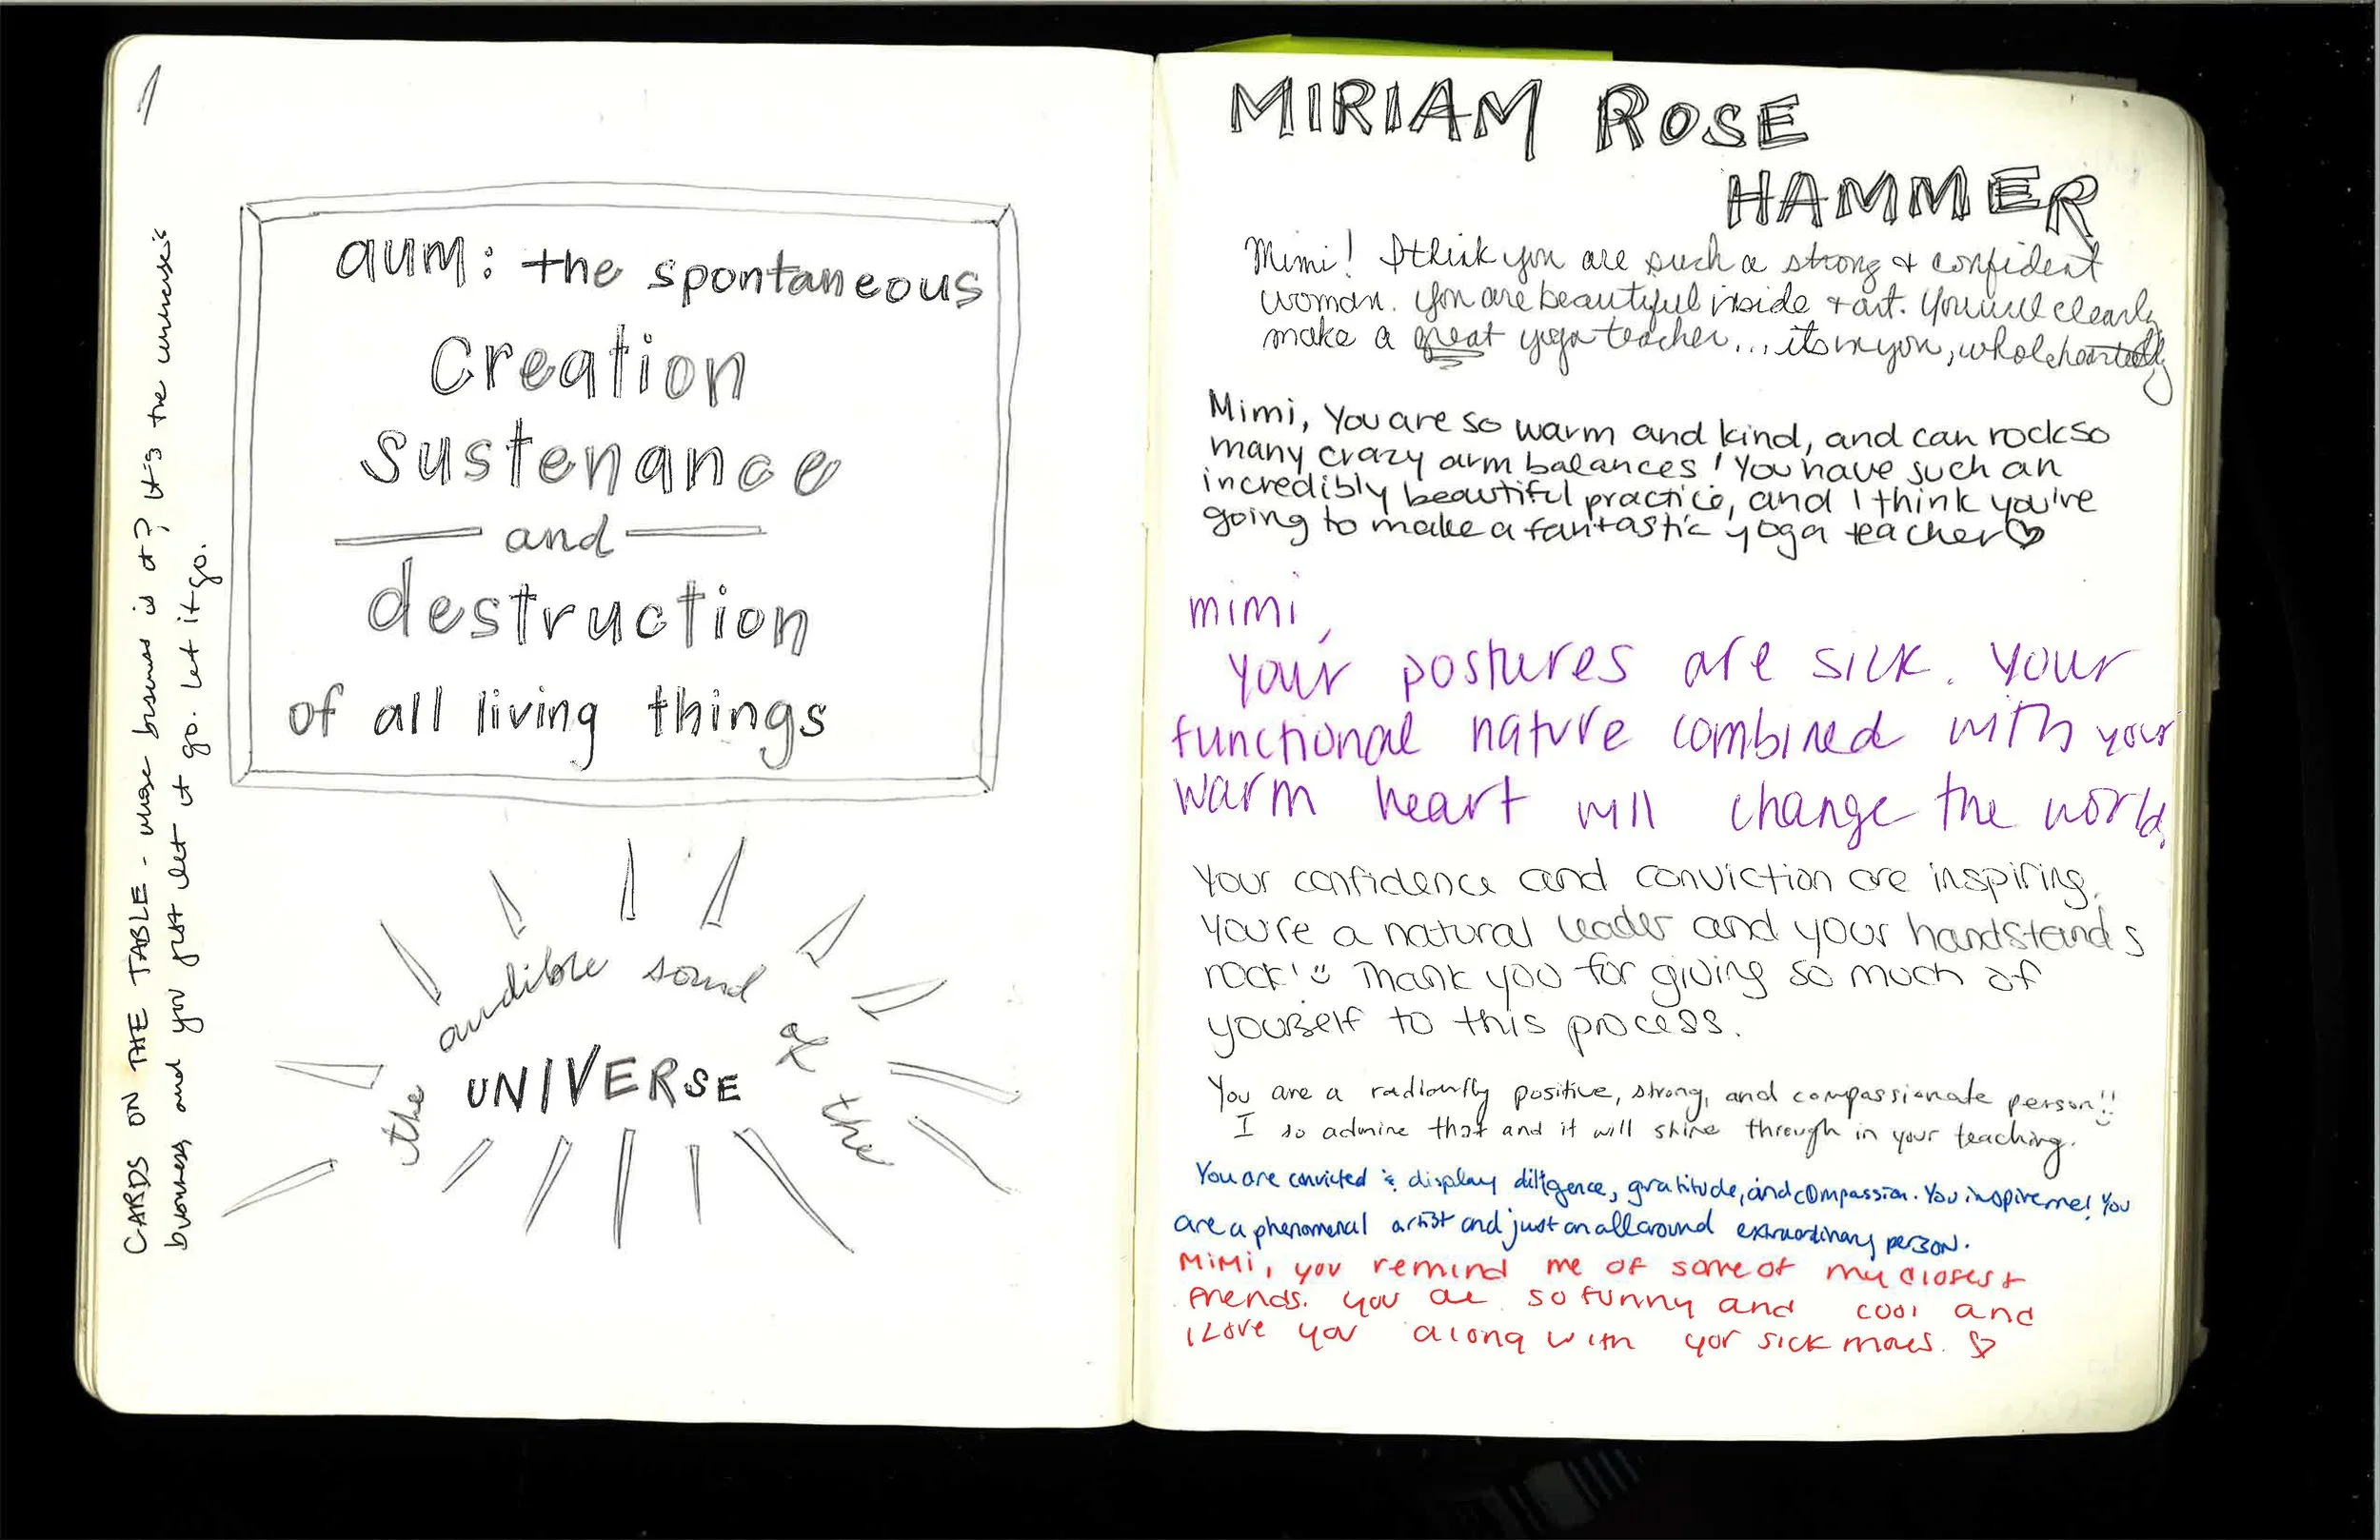 1
CARDS ON THE TABLE - whose business is it? It's the universe's
business, and you just let it go. let it go.
aum: the spontaneous
Creation
sustenance
and
destruction
of all living things
the audible sound of the
UNIVERSE
MIRIAM ROSE
HAMMER
Mimi! I think you are such a strong & confident
woman. You are beautiful inside + out. You will clearly
make a great yoga teacher... its in you, wholeheartedly
Mimi, You are so warm and kind, and can rock so
many crazy arm balances! You have such an
incredibly beautiful practice, and I think you're
going to make a fantastic yoga teacher♡
mimi,
your postures are sick. your
functional nature combined with your
warm heart will change the world.
Your confidence and conviction are inspiring.
You're a natural leader and your handstands
rock! ☺ Thank you for giving so much of
yourself to this process.
You are a radiantly positive, strong, and compassionate person!!
I so admire that and it will shine through in your teaching.
You are convicted & display diligence, gratitude, and compassion. You inspire me! You
are a phenomenal artist and just an all around extraordinary person.
MiMi, you remind me of some of my closest
friends. you are so funny and cool and
i Love you along with yor sick moves. ♡